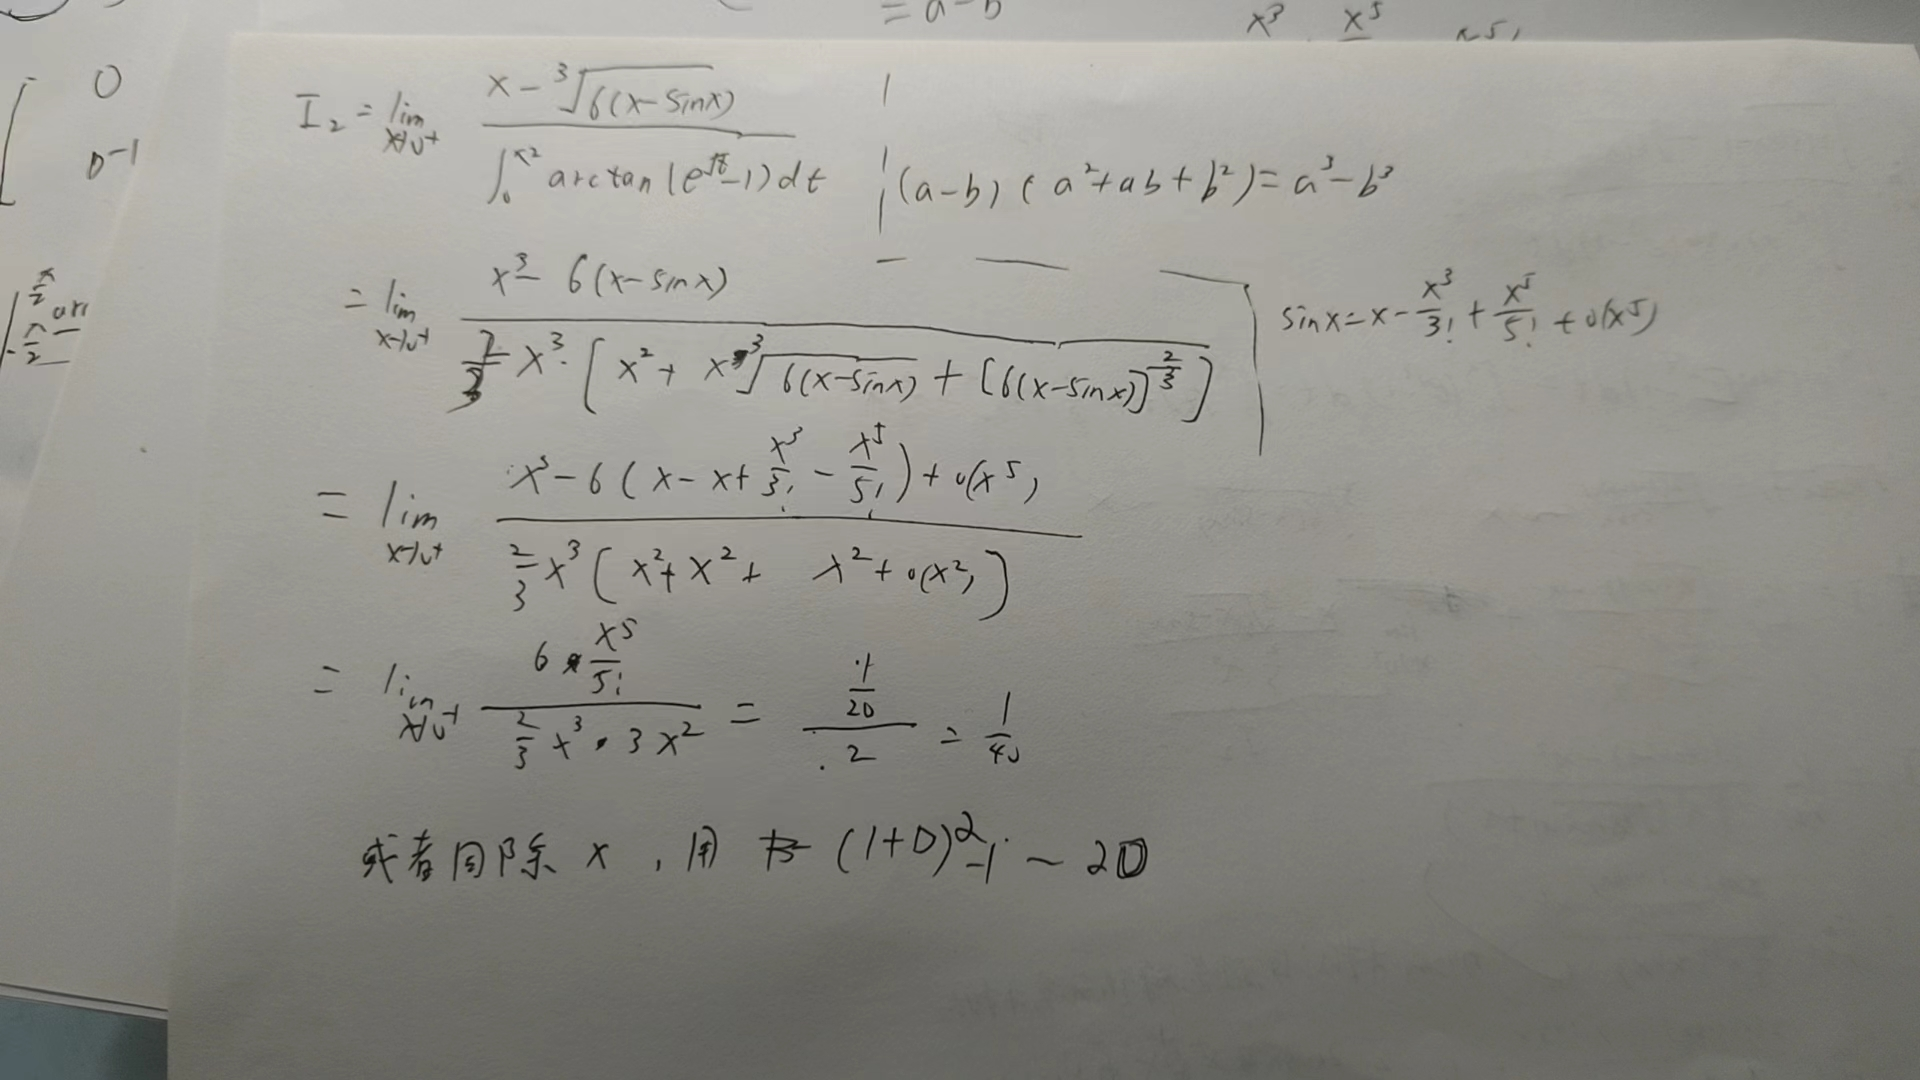 = a - b
x³ x⁵
0
0⁻¹
I₂ = lim_{x→0⁺} (x - ³√(6(x-sinx))) / (∫₀^{x²} arctan(e^{√t}-1)dt)
(a-b)(a²+ab+b²)=a³-b³
= lim_{x→0⁺} (x³ - 6(x-sinx)) / (2/3 x³·[x² + x ³√(6(x-sinx)) + [6(x-sinx)]^{2/3}])
sinx = x - x³/3! + x⁵/5! + o(x⁵)
π/2
-π/2
= lim_{x→0⁺} (x³ - 6(x - x + x³/3! - x⁵/5!) + o(x⁵)) / (2/3 x³(x² + x² + x² + o(x²)))
= lim_{x→0⁺} (6·x⁵/5!) / (2/3 x³·3x²) = (1/20)/2 = 1/40
或者同除 x , 用 (1+□)²-1 ~ 2□